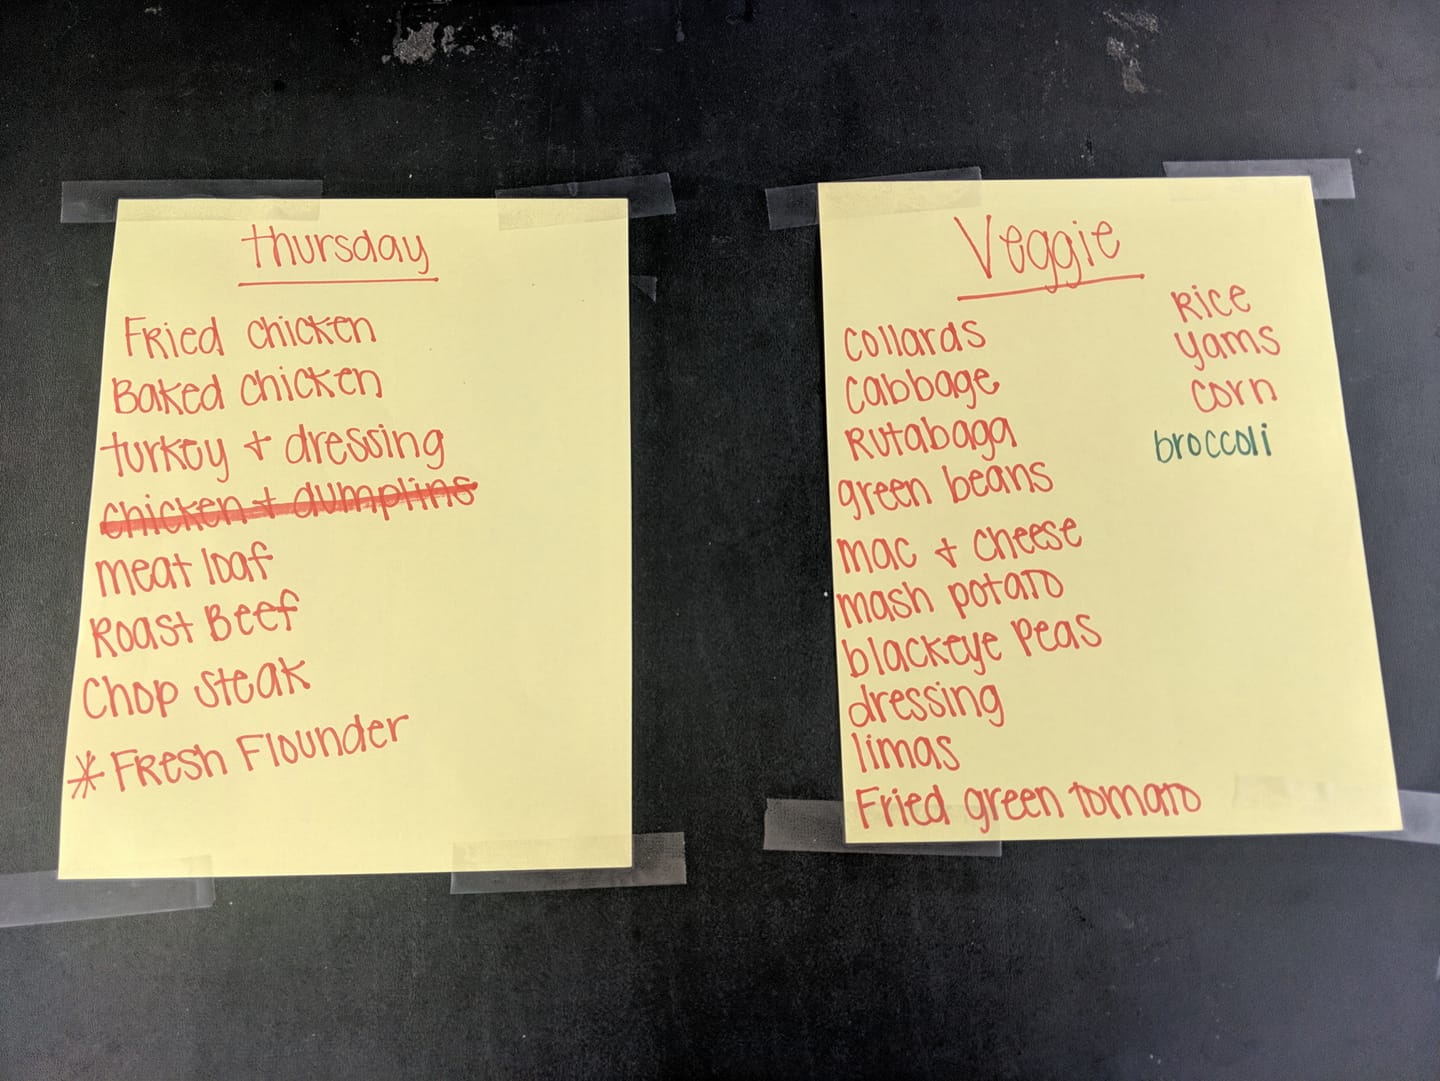 thursday
Fried chicken
Baked chicken
turkey + dressing
chicken + dumplins
meat loaf
Roast Beef
Chop steak
* Fresh Flounder
Veggie
collards
cabbage
Rutabaga
green beans
mac + cheese
mash potato
blackeye peas
dressing
limas
Fried green tomato
Rice
yams
corn
broccoli